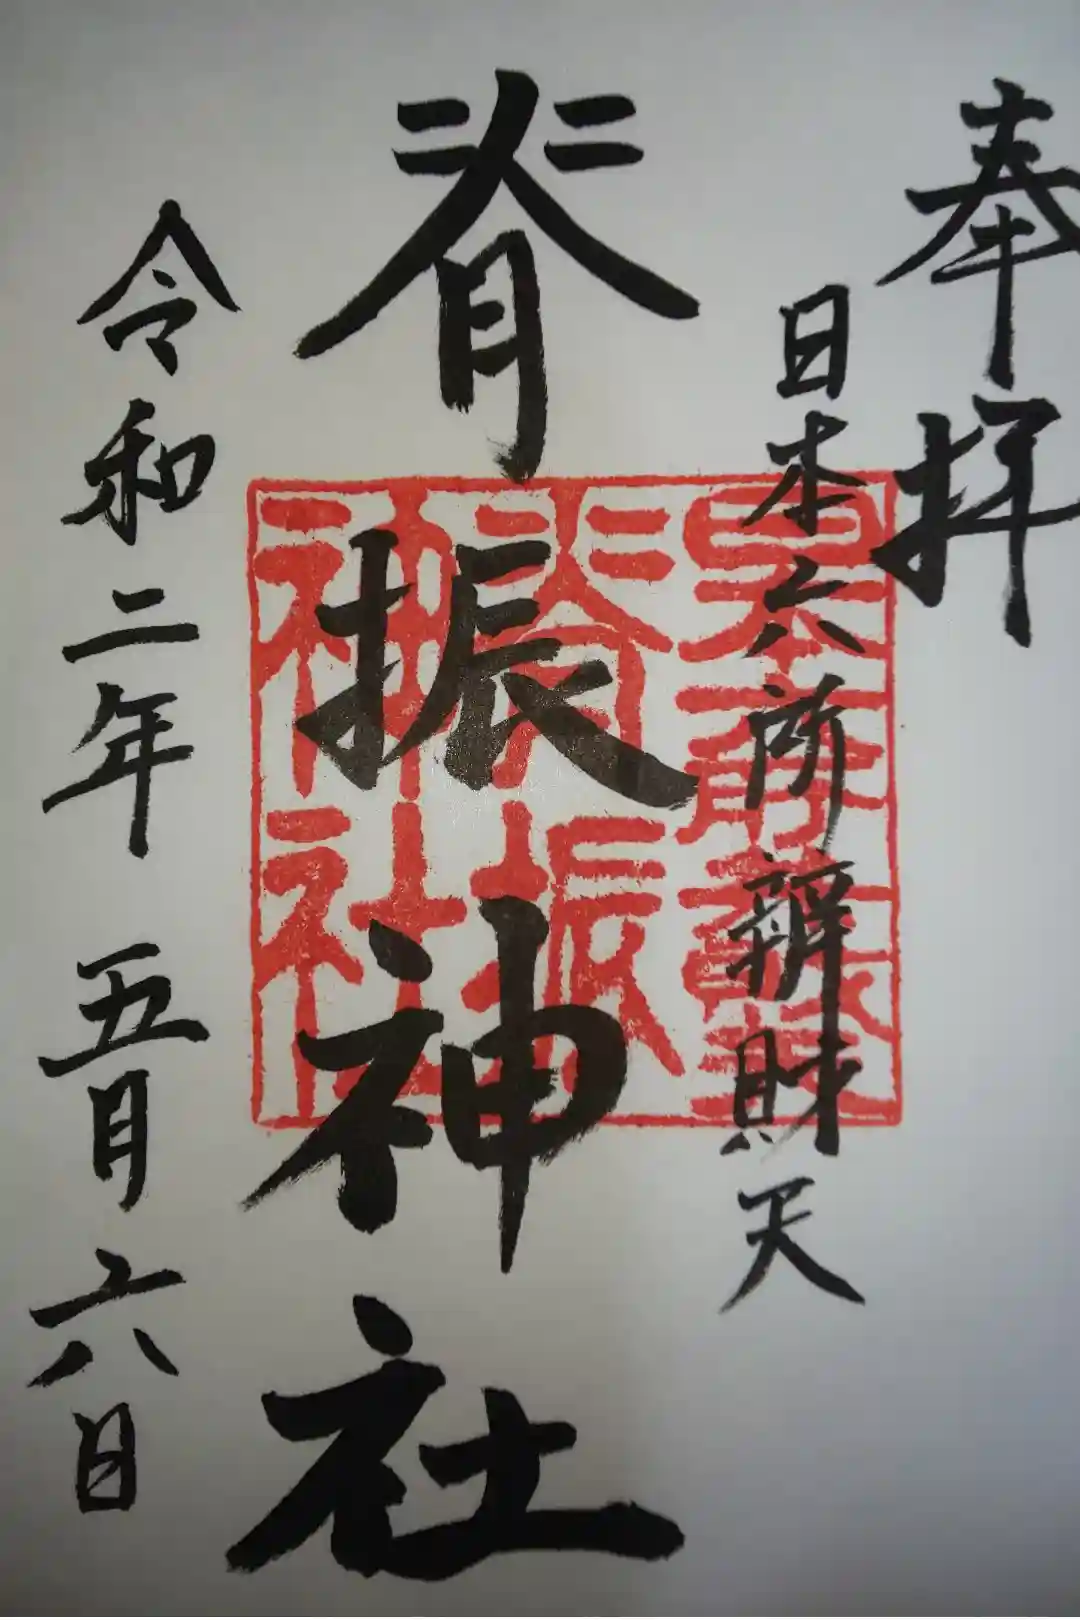 奉拝
日本六所辨財天
脊振神社
令和二年 五月六日
脊振
神社